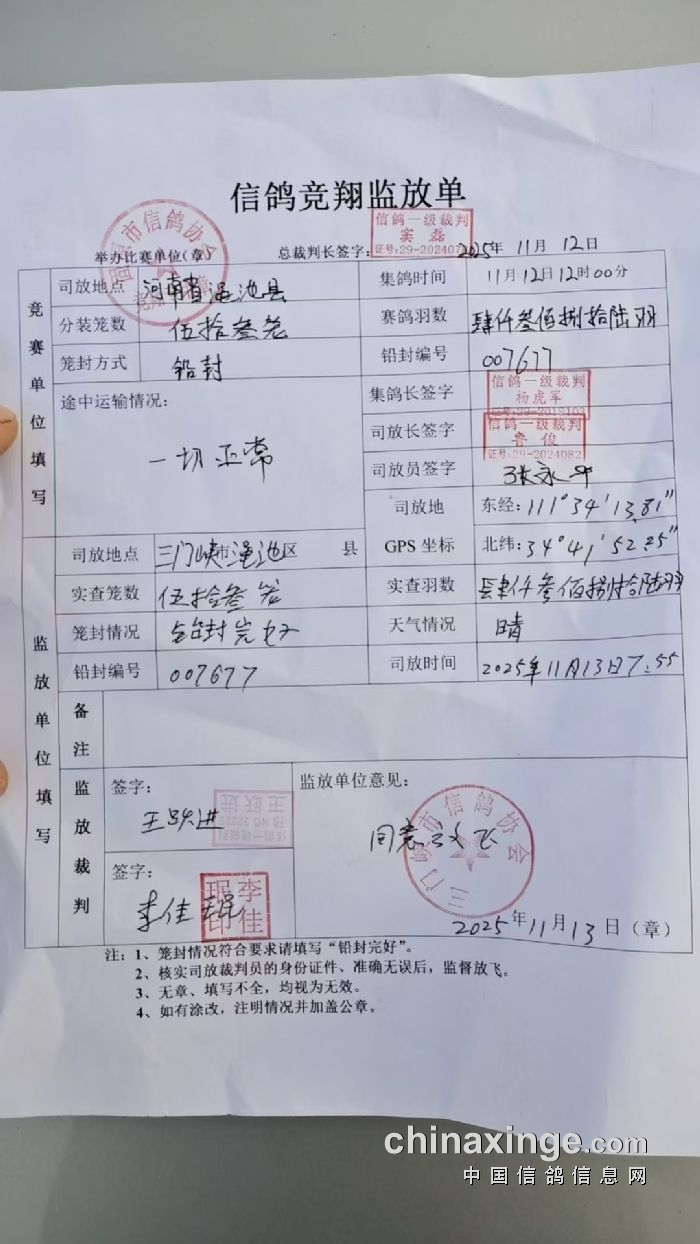 信鸽竞翔监放单
市信鸽协会
举办比赛单位(章)
总裁判长签字:
信鸽一级裁判
窦磊
2025年11月12日
竞赛单位填写
司放地点 河南省渑池县 集鸽时间 11月12日12时00分
分装笼数 伍拾叁笼 赛鸽羽数 肆仟叁佰捌拾陆羽
笼封方式 铅封 铅封编号 007677
途中运输情况: 一切正常
集鸽长签字 信鸽一级裁判
杨虎军
司放长签字 信鸽一级裁判
鲁俊
证号:29-2024082
司放员签字 张永
司放地
GPS 坐标
东经:111°34'13.81"
北纬:34°41'52.25"
监放单位填写
司放地点 三门峡市渑池区 县
实查笼数 伍拾叁笼 实查羽数 肆仟叁佰捌拾陆羽
笼封情况 铅封完好 天气情况 晴
铅封编号 007677 司放时间 2025年11月13日7:55
备注
监放裁判
签字:
王跃进
王跃进
信鸽一级裁判
签字:
李佳珉
李佳珉印
监放单位意见:
同意放飞
三门峡市信鸽协会
2025年11月13日(章)
注:1、笼封情况符合要求请填写“铅封完好”。
2、核实司放裁判员的身份证件、准确无误后,监督放飞。
3、无章、填写不全,均视为无效。
4、如有涂改,注明情况并加盖公章。
chinaxinge.com
中国信鸽信息网